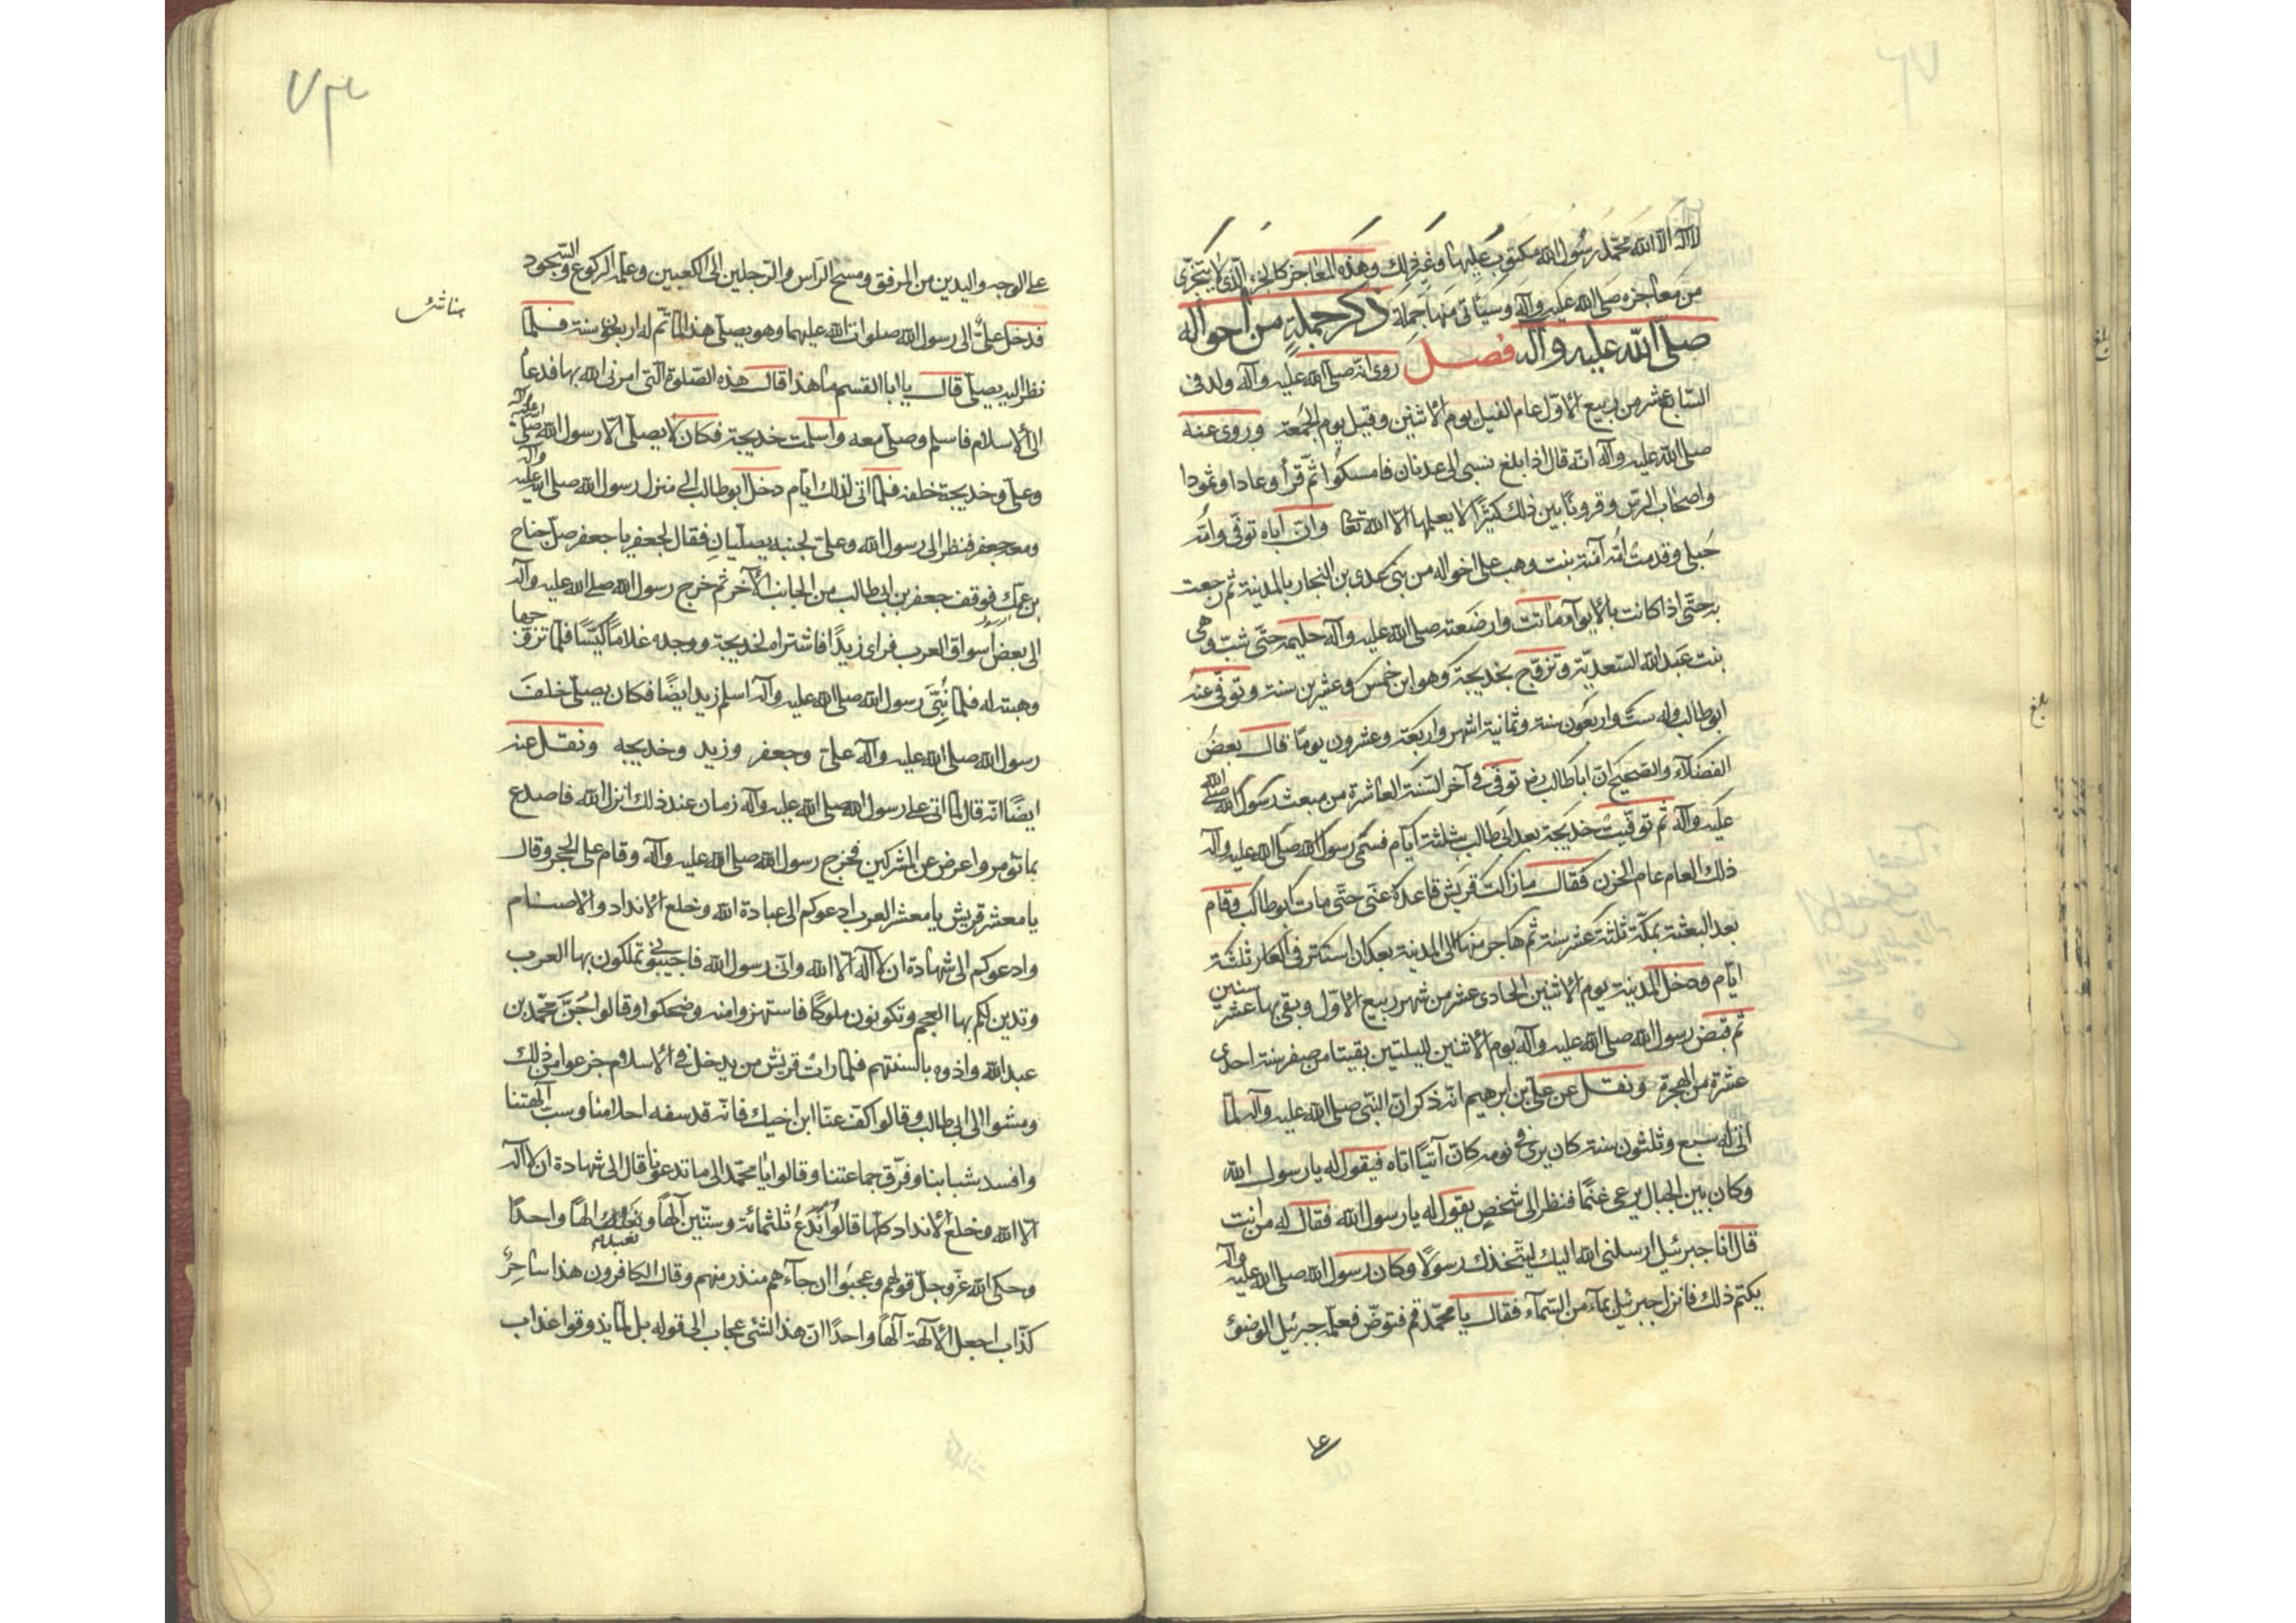 لا اله الا الله محمد رسول الله مكتوب عليها وغير ذلك وهذه المعاجز كالجزء الذى لا يتجزى
من معاجزه صلى الله عليه وآله وسيأتى منها جملة ذكر جملة من احواله
صلى الله عليه وآله فصل روى انه صلى الله عليه وآله ولد فى
السابع عشر من ربيع الاول عام الفيل يوم الاثنين وقيل يوم الجمعة وروى عنه
صلى الله عليه وآله انه قال اذا بلغ نسبى الى عدنان فامسكوا ثم قرأ وعادا وثمودا
واصحاب الرس وقرونا بين ذلك كثيرا لا يعلمها الا الله تعا وان اباه توفى وامه
حبلى وقدمت امه آمنة بنت وهب على اخواله من بنى عدى بن النجار بالمدينة ثم رجعت
به حتى اذا كانت بالابوآء ماتت وارضعته صلى الله عليه وآله حليمه حتى شب وهى
بنت عبد الله السعدية وتزوج بخديجة وهو ابن خمس وعشرين سنة وتوفى عنه
ابو طالب وله ست واربعون سنة وثمانية اشهر واربعة وعشرون يوما قال بعض
الفضلآء والصحيح ان ابا طالب رض توفى فى آخر السنة العاشرة من مبعث رسول الله صلى الله
عليه وآله ثم توفيت خديجة بعد ابى طالب بثلثة ايام فسمى رسول الله صلى الله عليه وآله
ذلك العام عام الحزن فقال ما زالت قريش قاعدة عنى حتى مات ابو طالب وقام
بعد البعثة بمكة ثلثة عشر سنة ثم هاجر منها الى المدينة بعد ان استتر فى الغار ثلثة
ايام ودخل المدينة يوم الاثنين الحادى عشر من شهر ربيع الاول وبقى بها عشر سنين
ثم قبض رسول الله صلى الله عليه وآله يوم الاثنين لليلتين بقيتا من صفر سنة احدى
عشرة من الهجرة ونقل عن على بن ابرهيم انه ذكر ان النبى صلى الله عليه وآله لما
اتى له سبع وثلثون سنة كان يرى فى نومه كان آتيا اتاه فيقول له يا رسول الله
وكان بين الجبال يرعى غنما فنظر الى شخص يقول له يا رسول الله فقال له من انت
قال انا جبرئيل ارسلنى الله اليك ليتخذك رسولا وكان رسول الله صلى الله عليه وآله
يكتم ذلك فانزل جبرئيل بمآء من السمآء فقال يا محمد قم فتوض فعلمه جبرئيل الوضوء
على
على الوجه واليدين من المرفق ومسح الراس والرجلين الى الكعبين وعلمه الركوع والسجود
فدخل على الى رسول الله صلوات الله عليهما وهو يصلى هذا لما تم له اربعون سنة فلما
نظر اليه يصلى قال يا ابا القسم ما هذا قال هذه الصلوة التى امرنى الله بها فدعا
الى الاسلام فاسلم وصلى معه واسلمت خديجة فكان لا يصلى الا رسول الله صلى الله عليه وآله
وعلى وخديجة خلفه فلما اتى لذلك ايام دخل ابو طالب الى منزل رسول الله صلى الله عليه وآله
ومعه جعفر فنظر الى رسول الله وعلى بجنبه يصليان فقال لجعفر يا جعفر صل جناح
بن عمك فوقف جعفر بن ابى طالب من الجانب الآخر ثم خرج رسول الله صلى الله عليه وآله
الى بعض اسواق العرب فراى زيدا فاشتراه لخديجة ووجده غلاما كيسا فلما تزوجها
وهبته له فلما نبئ رسول الله صلى الله عليه وآله اسلم زيد ايضا فكان يصلى خلف
رسول الله صلى الله عليه وآله على وجعفر وزيد وخديجه ونقل عنه
ايضا انه قال لما اتى على رسول الله صلى الله عليه وآله زمان عند ذلك انزل الله فاصدع
بما تؤمر واعرض عن المشركين فخرج رسول الله صلى الله عليه وآله وقام على الحجر وقال
يا معشر قريش يا معشر العرب ادعوكم الى عبادة الله وخلع الانداد والاصنام
وادعوكم الى شهادة ان لا اله الا الله وانى رسول الله فاجيبونى تملكون بها العرب
وتدين لكم بها العجم وتكونون ملوكا فاستهزوا منه وضحكوا وقالوا جن محمد بن
عبد الله واذوه بالسنتهم فلما رات قريش من يدخل فى الاسلام جزعوا من ذلك
ومشوا الى ابى طالب وقالوا كف عنا ابن اخيك فانه قد سفه احلامنا وسب آلهتنا
وافسد شبابنا وفرق جماعتنا وقالوا يا محمد الى ما تدعونا قال الى شهادة ان لا اله
الا الله وخلع الانداد كلها قالوا ندع ثلثمائة وستين آلها ونعبد الها واحدا
وحكى الله عز وجل قولهم وعجبوا ان جآءهم منذر منهم وقال الكافرون هذا ساحر
كذاب اجعل الآلهة آلها واحدا ان هذا لشئ عجاب الى قوله بل لما يذوقوا عذاب